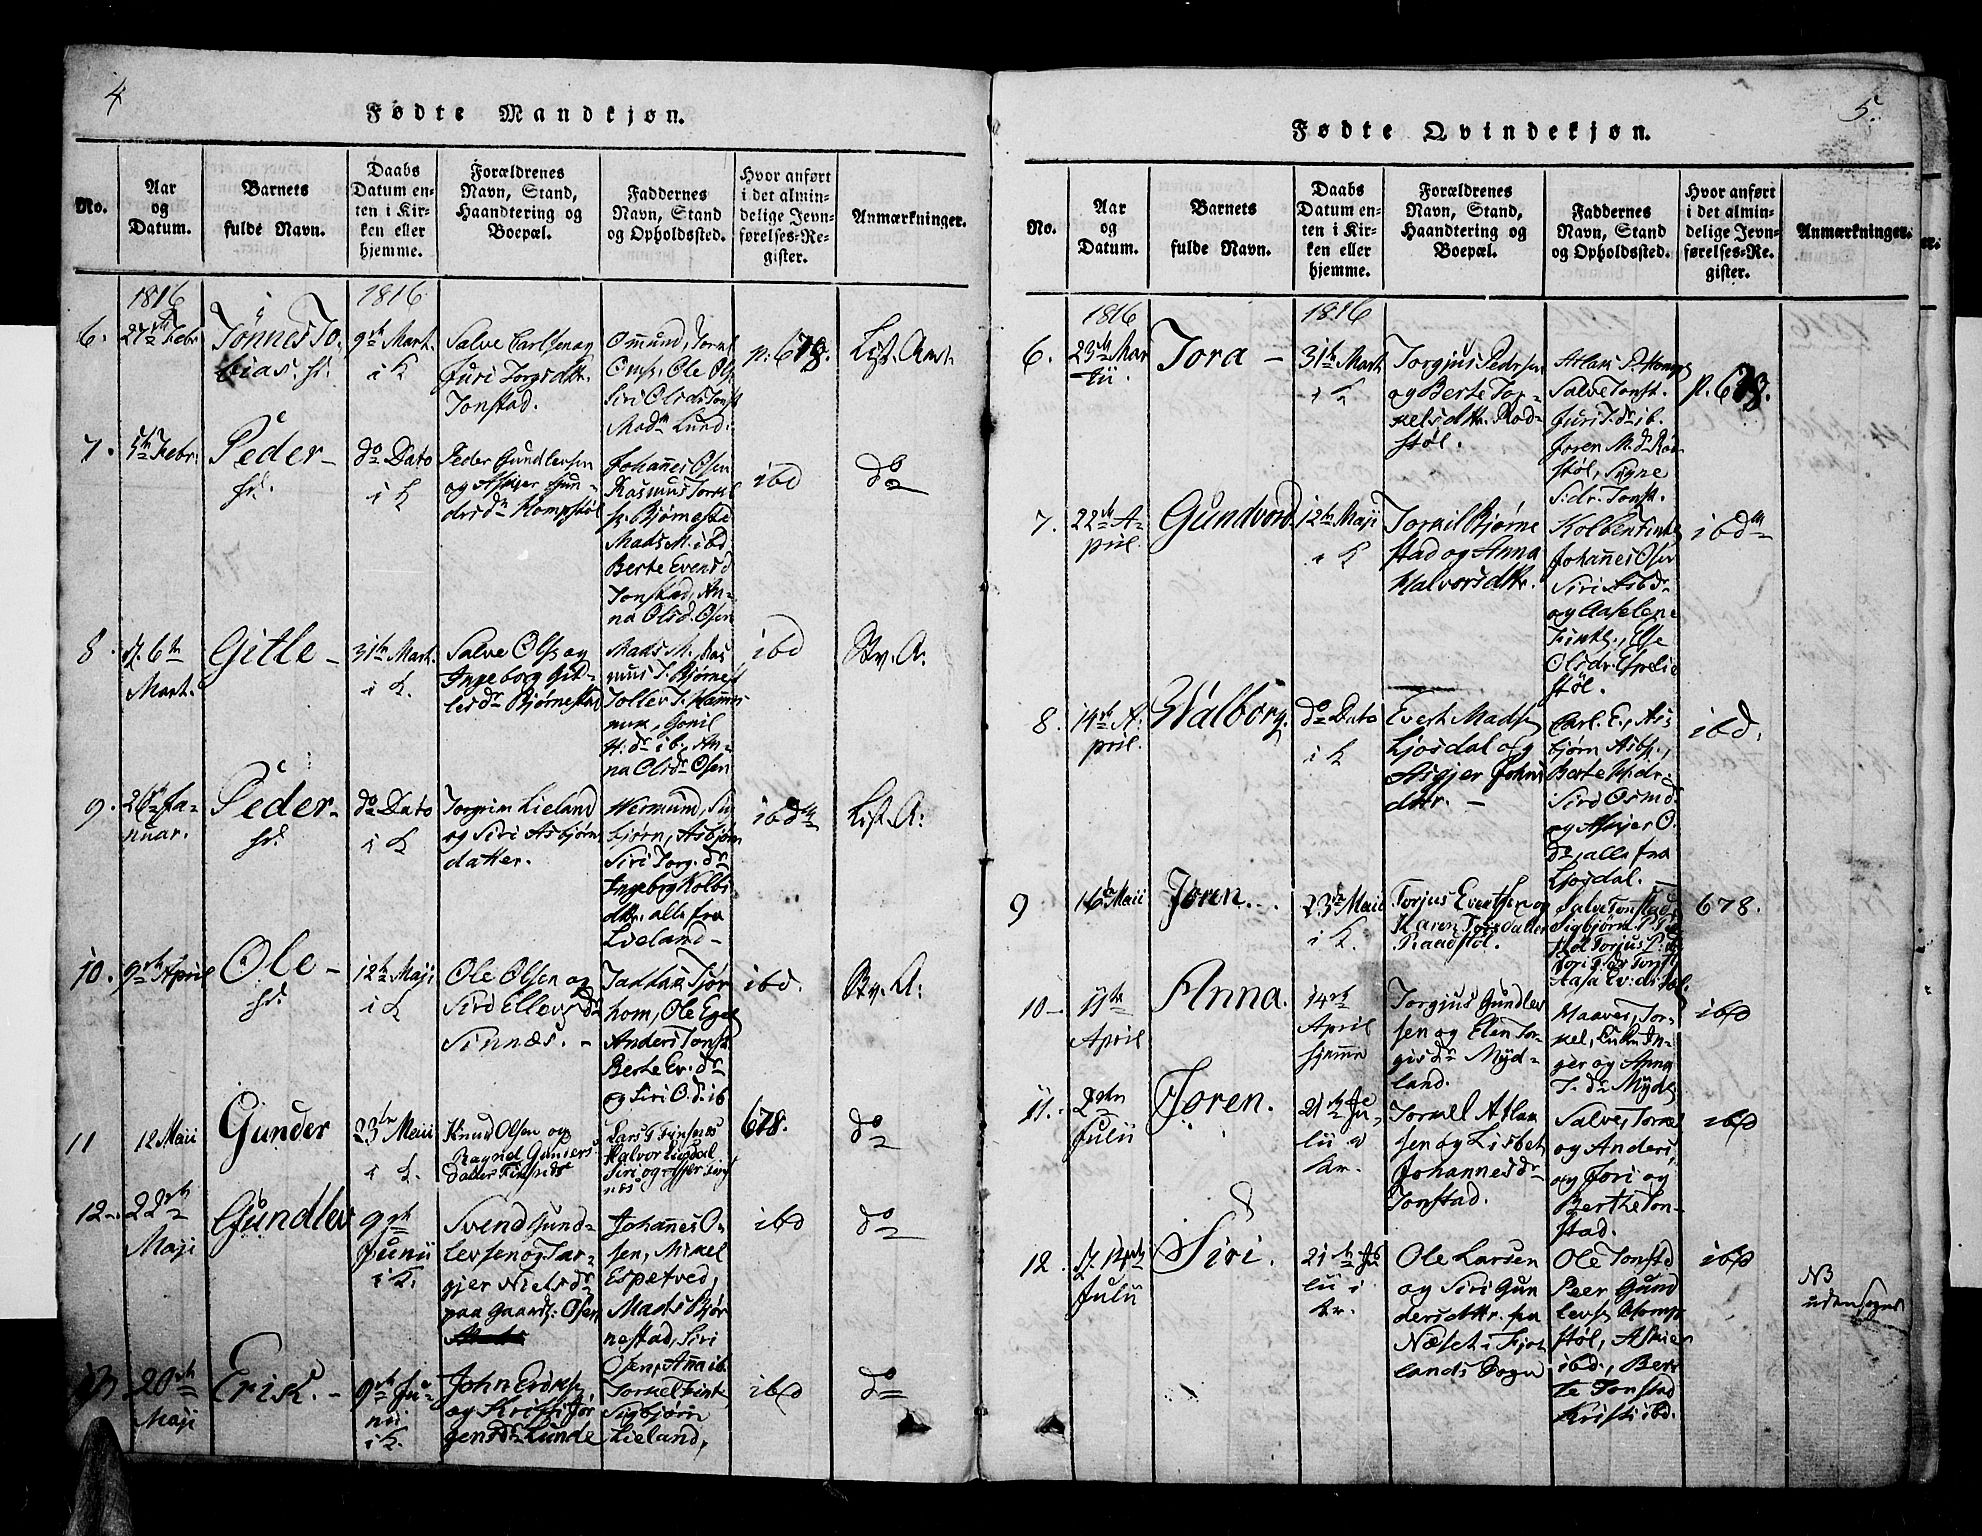 4
Fødte Mandkjøn.
No.
Aar
og
Datum.
Barnets
fulde Navn.
Daabs
Datum en-
ten i Kir-
ken eller
hjemme.
Forældrenes
Navn, Stand,
Haandtering og
Boepæl.
Faddernes
Navn, Stand
og Opholdssted.
Hvor anført
i det almin-
delige Jevn-
førelses-Re-
gister.
Anmærkninger.
1816
1816
6.
27de Febr
Tønnes To-
bias.
9de Mart.
i K
Salve Carlsen og
Juri Torgsdttr.
Tonstad.
Omund, Torkel
Oms., Ole Ols.
Siri Olsdr Tonst
Madm Lund.
p. 678.
7.
5te Febr.
Peder –
do Dato
i K
Peder Gundlevsen
og Asgjer Gun-
dersdr Kompstøl
Johannes Osen
Rasmus Torkel
s. Bjørneste
Mads M. ibd
Berte Evensd
Tonstad, An-
na Olsd. Osen
ibd
do
8
d. 6te
Mart.
Gitle –
31te Mart.
i K.
Salve Olss og
Ingeborg Git-
lesdr Bjørnestad
Mads M. Ras
mus T. Bjørnest
Tollev T.
Gonil
dr ib. An-
na Olsdr Osen
ibd
9.
Ja-
nuar.
Peder –
do Dato
i K
Torgrim Lieland
og Siri Asbjørns
datter.
Hermund, Sig
bjørn, Asbjørn
Siri Torg. dr
Ingeborg Kolbi
dttr. alle fra
Lieland –
ibdm
10.
9de April
Ole –
12te Maji
i K
Ole Olsen og
Siri Ellevsdr
Sinnes. –
hom, Ole Egel
Anders Tonst
Berte Ev. dr
og Siri O. d. ib
ibd.
11
12 Maii
Gunder
23de Maii
i K.
Knud Olsen og
Ragnild Gunders
Datter Finsnæs
Lars T Finsnæs
Halvor Liosdal
678.
do
12
22de
Maji
Gundlev
9de
Junii
i K.
Svend Gund-
levsen og Tar-
gjer Nielsdr
paa Gaard. Osen
Johannes O-
sen, Mikel
Espetved,
Mads Bjør
nestad, Siri
Osen, Anna ib.
ibd
do
13
20de
Maji
Erik. –
9de Ju-
nii
i K.
John Eriks.
og Kristi Jør
gensdr Lunde
Torkel Finte
Sigbjørn
Lieland,
ibd
do
5.
Fødte Qvindekjøn.
No.
Aar
og
Datum.
Barnets
fulde Navn.
Daabs
Datum en-
ten i Kir-
ken eller
hjemme.
Forældrenes
Navn, Stand,
Haandtering og
Boepæl.
Faddernes
Navn, Stand
og Opholdssted.
Hvor anført
i det almin-
delige Jevn-
førelses-Re-
gister.
Anmærkninger.
1816
1816
6.
23de Mar
tii.
Tora –
31te Mart
i K
Torgjus Pedersen
og Berte Tor-
kelsdttr. Rod-
støl.
Atlak P. Homps
Salve Tonst.
Juri T. dr ib.
Joren M. dr Rød
støl, Signe
S: dr. Tonst.
p. 678.
7.
22de A-
pril.
Gundvord
12te Maji
i K
Torkil Bjørne
stad og Anna
Halvorsdttr.
Kolben Finte
Johannes Osen
og Aaselene
Finte, Else
Olsdr. Espelie
støl.
ibdm
8.
14de A-
pril.
Walborg.
do Dato
i K
Evert Madss
Liosdal og
Asgjer Johns
dttr. –
Carl. E., As-
bjørn Asbs.,
Siri Osmd.
og Asgjer O.
dr, alle fra
Liosdal. –
ibd.
9
16de Maii
Joren. . .
23de Maii
i K.
Torjus Evertsen og
Karen Torsdatter
Raadstøl.
Salve Tonstad
Sigbjørn
678.
10
11te
April
Anna.
14de
April
hjemme
Torgjus Gundlev
sen og Elen Tor-
gisdr Myd-
land.
Maaves, Tor-
kel, In-
ger og Anna
T. dr Mydl
ibd
11.
2den
Julii
Joren.
21de Ju-
lii i
Kr.
Torkel Atlak
sen og Lisbet
Johannesdr
Tonstad.
Salve, Torkel
og Anders,
og Jori og
Berthe Ton-
stad.
ibd
12.
d. 14de
Julii
Siri.
21de Ju
lii i
Kr.
Ole Larsen
og Siri Gun
dersdttr. fra
Næset i Fjot
lands Sogn
Ole Tonstad
Peer Gund
levs. Homp
støl, Askier
ibd., Ber-
te Tonstad
Kristi ibd.
ibd
NB
udensogns